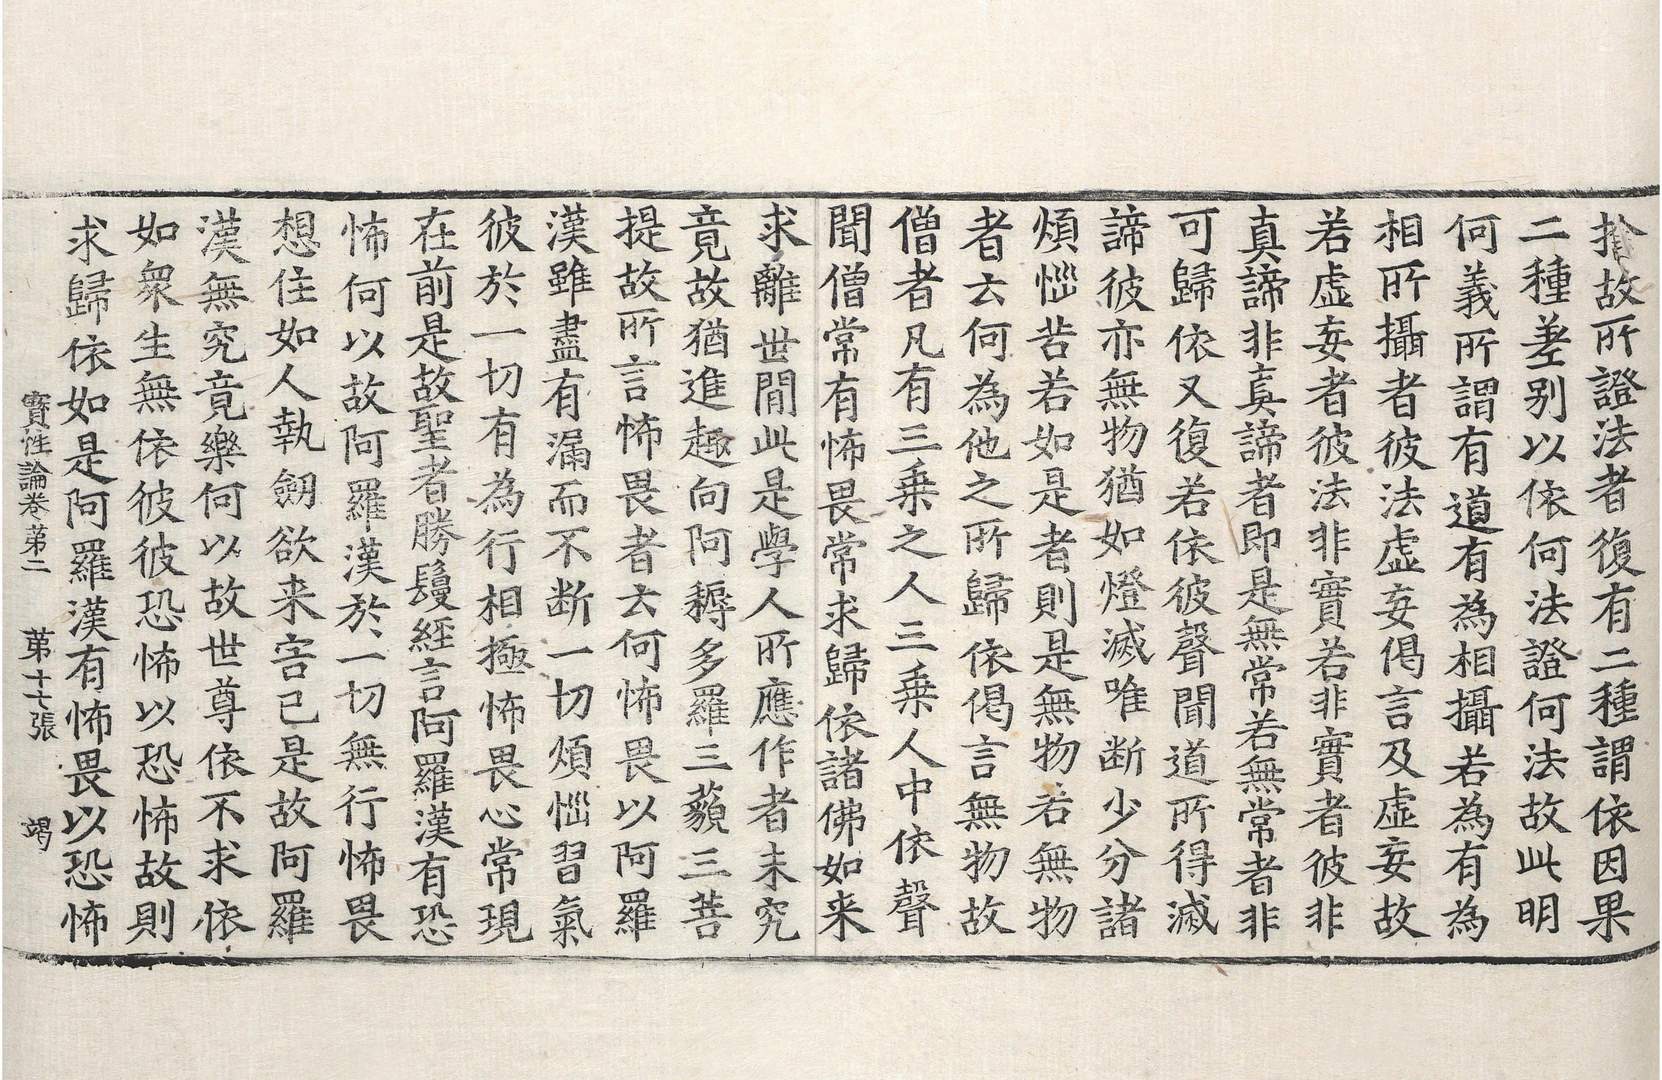 捨故所證法者復有二種謂依因果
二種差别以依何法證何法故此明
何義所謂有道有為相攝若為有為
相所攝者彼法虛妄偈言及虛妄故
若虛妄者彼法非實若非實者彼非
真諦非真諦者即是無常若無常者非
可歸依又復若依彼聲聞道所得滅
諦彼亦無物猶如燈滅唯断少分諸
煩惱苦若如是者則是無物若無物
者云何為他之所歸依偈言無物故
僧者凡有三乗之人三乗人中依聲
聞僧常有怖畏常求歸依諸佛如来
求離世間此是學人所應作者未究
竟故猶進趣向阿耨多羅三藐三菩
提故所言怖畏者云何怖畏以阿羅
漢雖盡有漏而不断一切煩惱習氣
彼於一切有為行相極怖畏心常現
在前是故聖者勝鬘經言阿羅漢有恐
怖何以故阿羅漢於一切無行怖畏
想住如人執劒欲来害已是故阿羅
漢無究竟樂何以故世尊依不求依
如衆生無依彼彼恐怖以恐怖故則
求歸依如是阿羅漢有怖畏以恐怖
寳性論卷第二 第十七張 竭